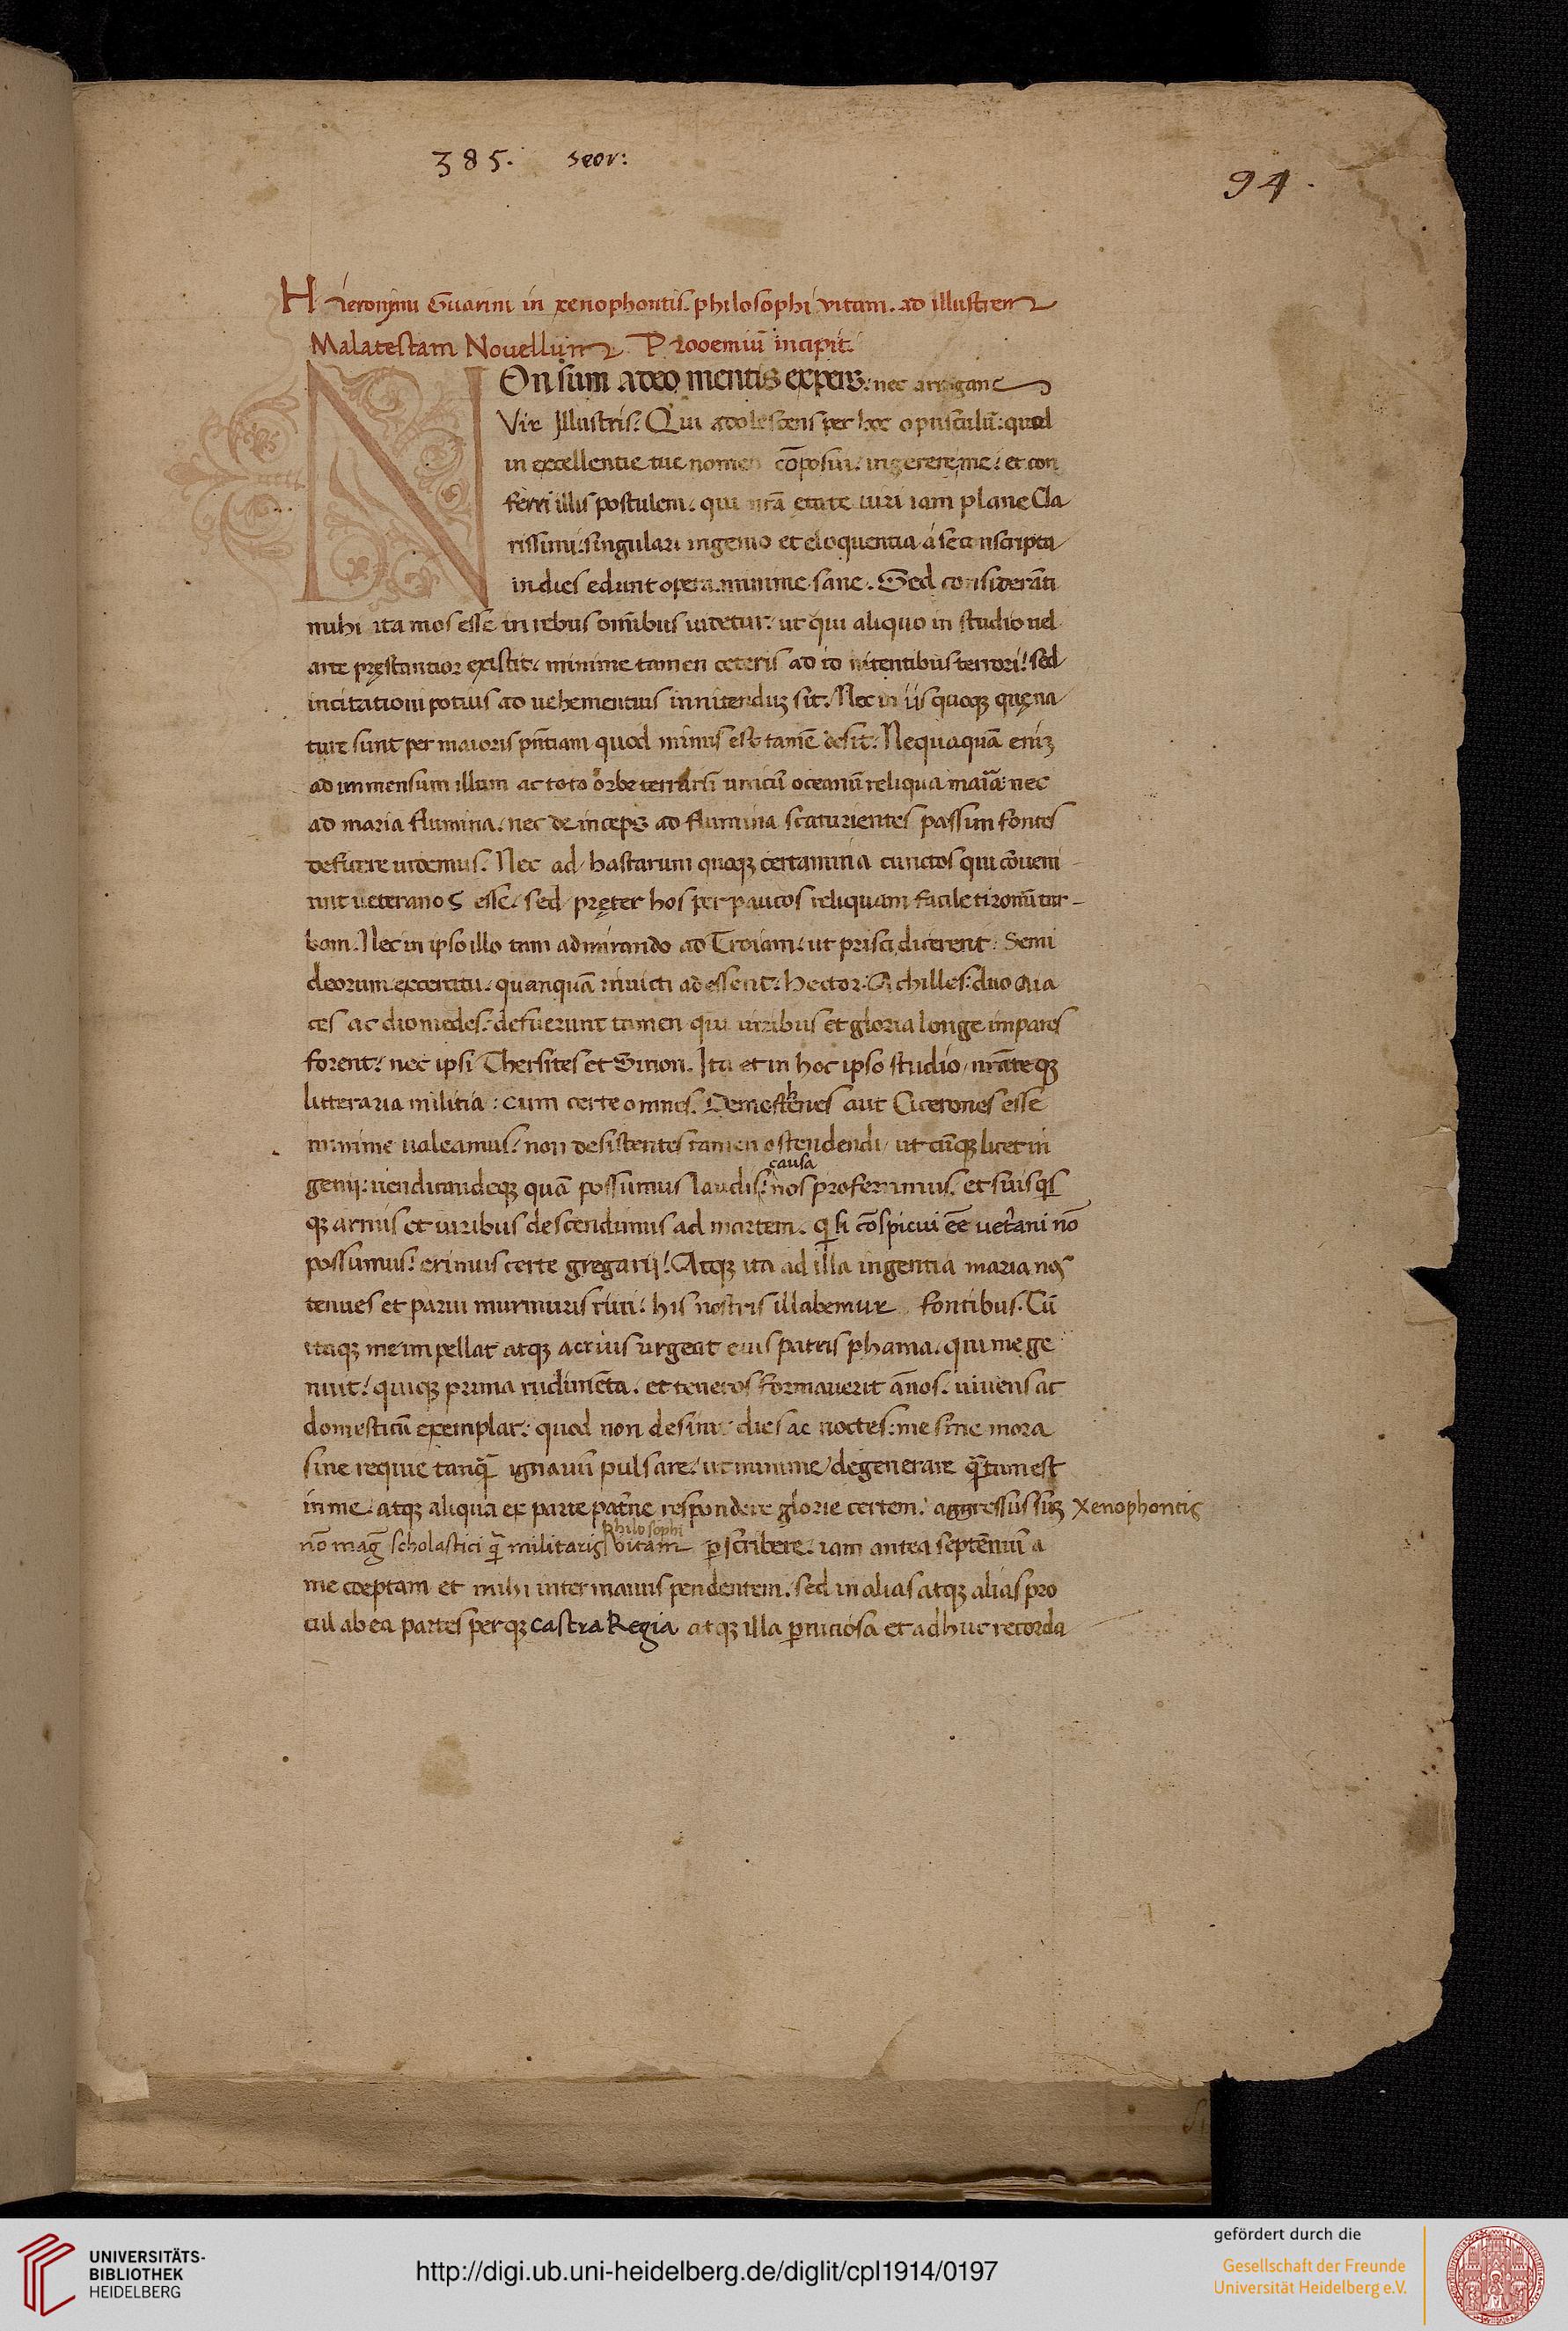 385. seor:
94.
Hieronymi Guarini in xenophontis. philosophi vitam. ad illustrem
Malatestam Nouellum Prooemiū incipit.
NOn sum adeo mentis expers: nec arrogans
Vir Illustris: Qui adolescens per hoc opusculū: quod
in excellentie tue nomen cōposui: ingerere me: et con
ferri illis postulem: qui nr̄a etate uiri iam plane Cla
rissimi: singulari ingenio et eloquentia a se conscripta
in dies edunt opera. minime sane. Sed considerāti
mihi ita mos esse in rebus omībus uidetur: ut qui aliquo in studio uel
arte pręstantior existit: minime tamen ceteris ad id nitentibus terrori: sed
incitationi potius ad uehementius innitenduꝫ sit. Nec in iis quoqꝫ quę na
ture sunt per maioris pn̄tiam quod minus est tamē desit: Nequaquā eniꝫ
ad immensum illum ac toto orbe terrarū unicū oceanū reliqua maria: nec
ad maria flumina: nec deinceps ad flumina scaturientes passim fontes
deficere uidemus. Nec ad hastarum quoqꝫ certamina cunctos qui cōueni
unt ueteranos esse: sed pręter hos perpaucos reliquam facile tironū tur
bam. Nec in ipso illo tam admirando ad Troiam: ut prisci dicerent: Semi
deorum exercitu: quanquā inuicti adessent: Hector: Achilles: duo Aia
ces ac diomedes: defuerunt tamen qui uiribus et gloria longe impares
forent: nec ipsi Thersites et Sinon. Ita et in hoc ipso studio nr̄ateqꝫ
litteraria militia: cum certe omnes Demosthenes aut Cicerones esse
minime ualeamus: non desistentes tamen ostendendi ut cūqꝫ licet in
causa
genii: uendicandeqꝫ quā possumus laudis: nos proferimus: et suis qs
qꝫ armis et uiribus descendimus ad martem. q si cōspicui ēe ueterani nō
possumus: erimus certe gregarii! Atqꝫ ita ad illa ingentia maria nos
tenues et parui murmuris riui: his nostris illabemur fontibus. Cū
itaqꝫ me impellat atqꝫ acrius urgeat eius patris phama: qui me ge
nuit: quiqꝫ prima rudimēta: et teneros formauerit ānos: uiuens ac
domesticū exemplar: quod non desinit dies ac noctes: me sine mora
sine requie tanq̄ ignauū pulsare: ut minime degenerare q̄tum est
in me: atqꝫ aliqua ex parte paterne respondere glorie certem: aggressus suꝫ Xenophontis
philosophi
nō mag scholastici q̄ militaris vitam pscribere: iam antea septēniū a
me coeptam et mihi inter manus pendentem: sed in alias atqꝫ alias pro
cul ab ea partes perqꝫ castra Regia atqꝫ illa pniciosa et adhuc recorda
UNIVERSITÄTS-
BIBLIOTHEK
HEIDELBERG
http://digi.ub.uni-heidelberg.de/diglit/cpl1914/0197
gefördert durch die
Gesellschaft der Freunde
Universität Heidelberg e.V.